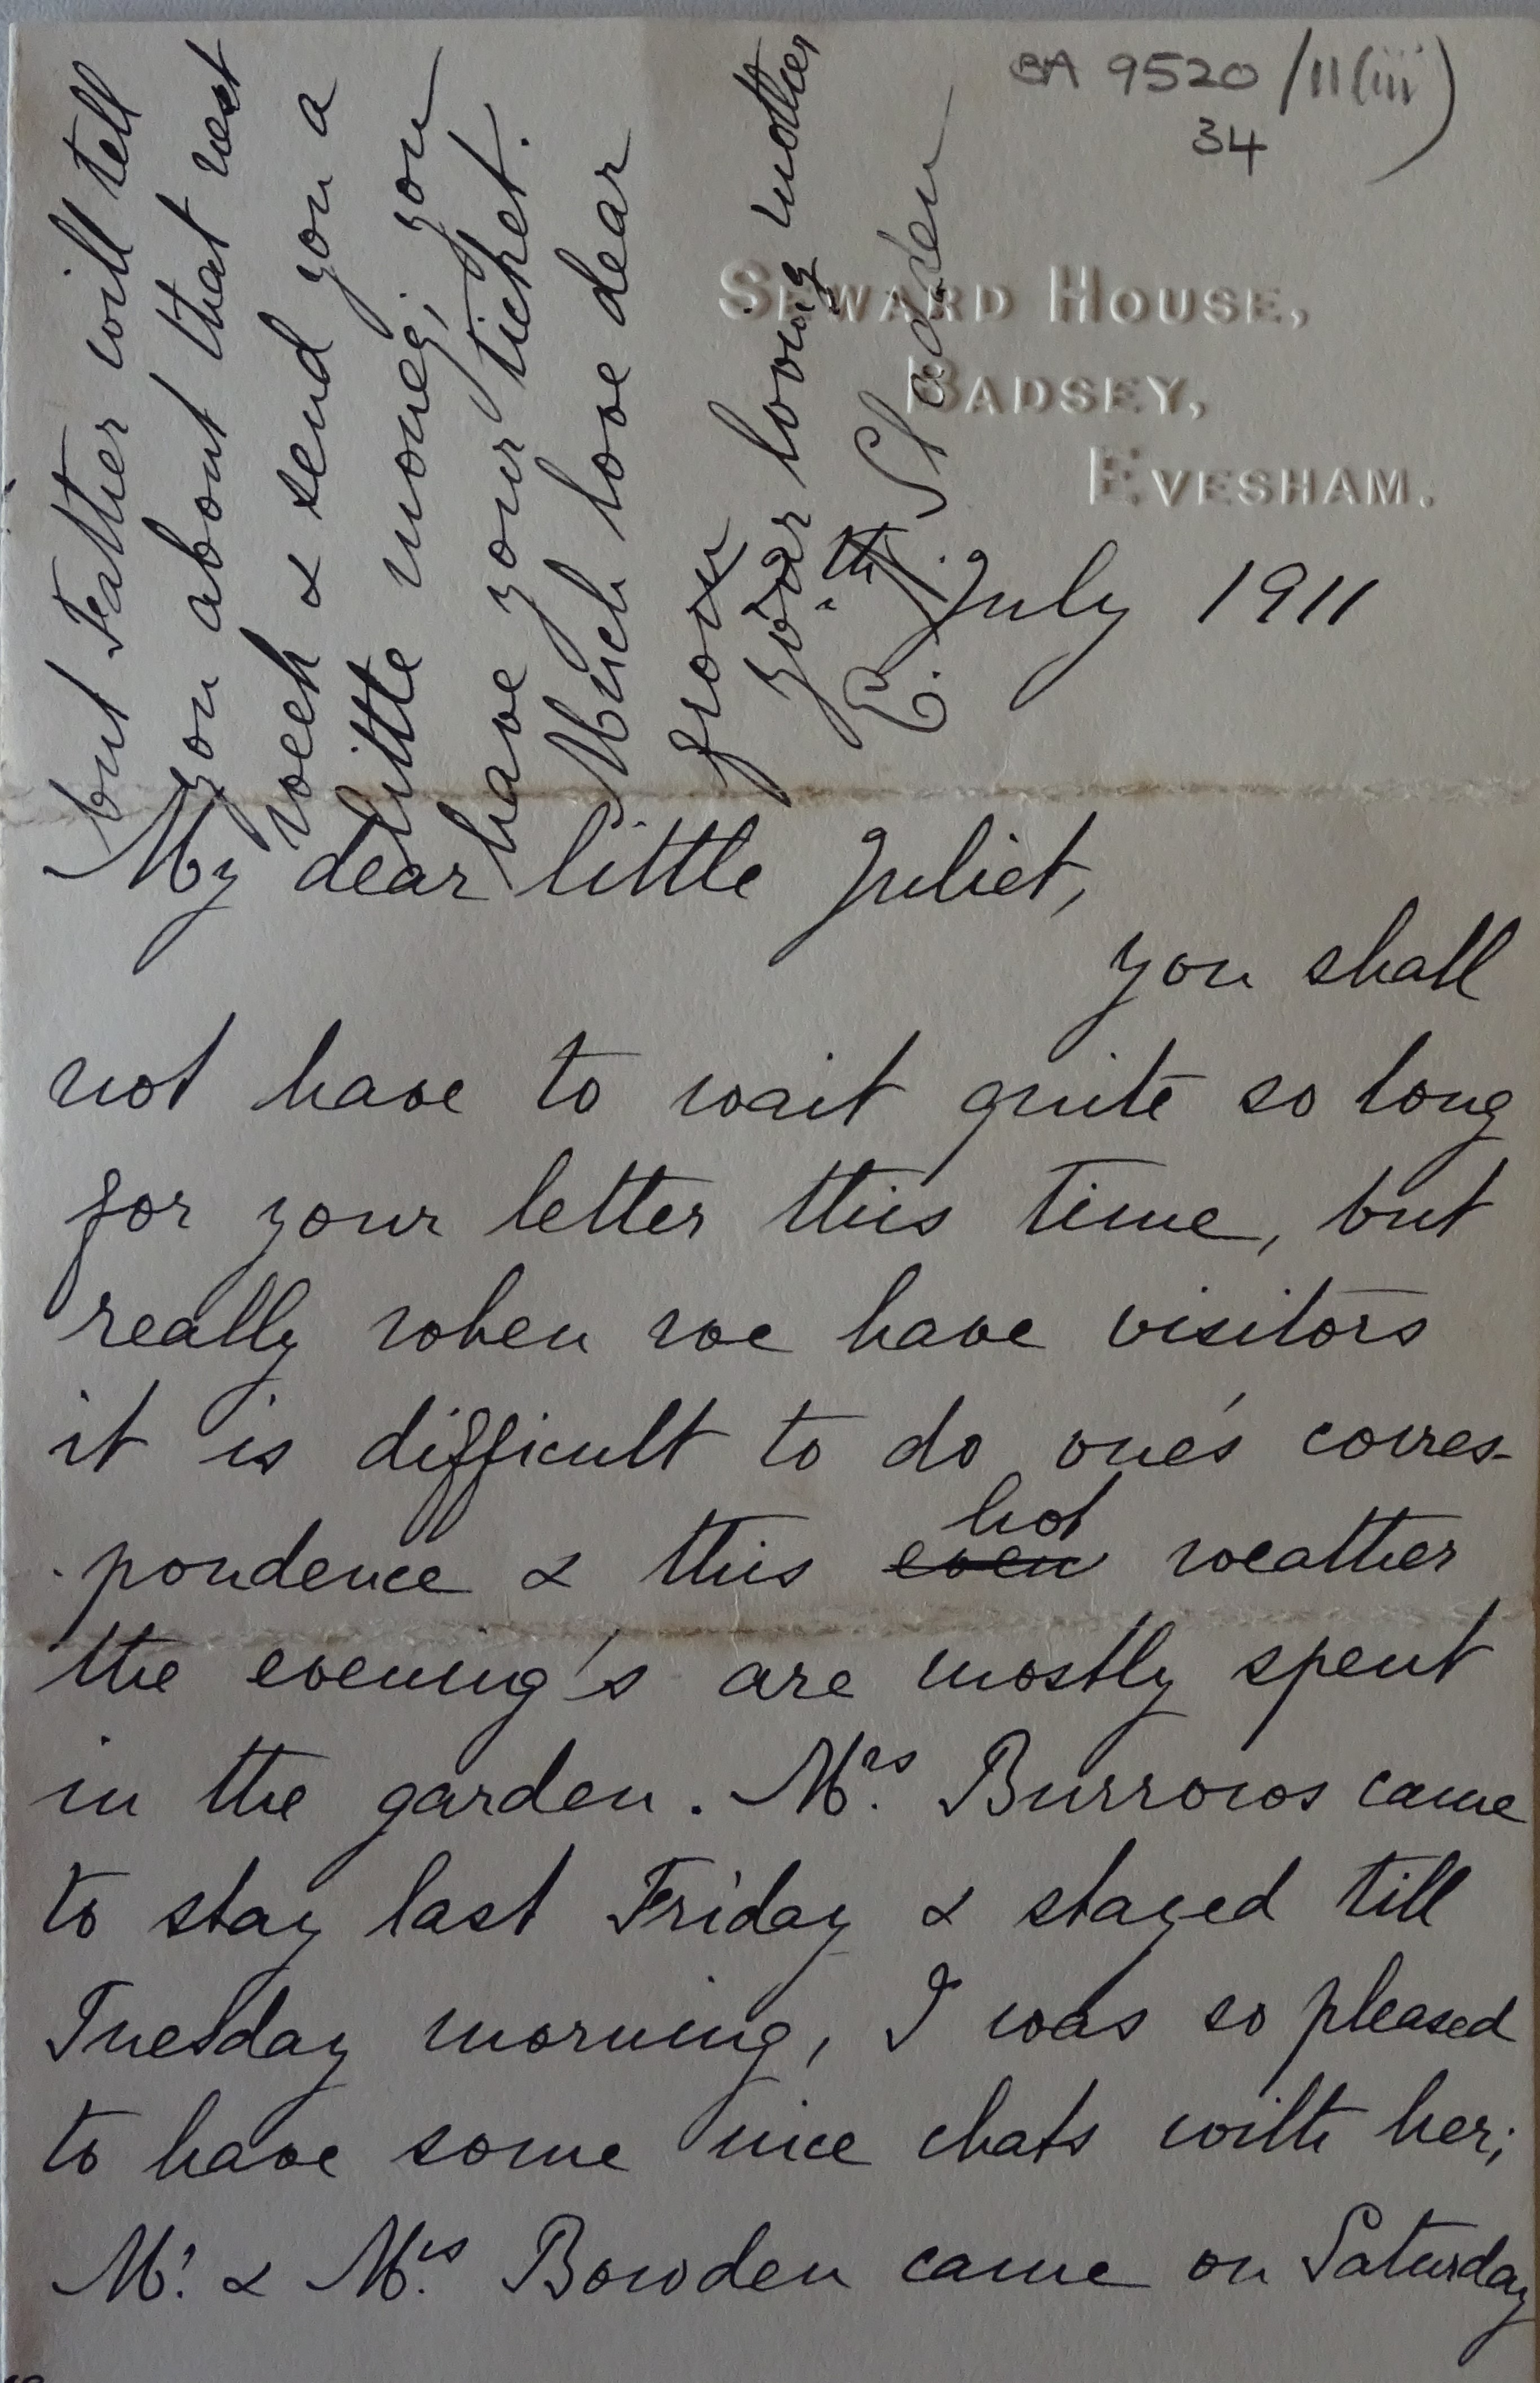 BA 9520/11(iii)
34
SEWARD HOUSE,
BADSEY,
EVESHAM.
th July 1911
My dear little Juliet,
you shall
not have to wait quite so long
for your letter this time, but
really when we have visitors
it is difficult to do one's corres-
pondence & this even hot weather
the evening's are mostly spent
in the garden. Mrs. Burrows came
to stay last Friday & stayed till
Tuesday morning, I was so pleased
to have some nice chats with her;
Mr. & Mrs. Bowden came on Saturday
but Father will tell
you about that next
week & send you a
little money, you
have your ticket.
Much love dear
from
your loving mother
E. N. Sladden